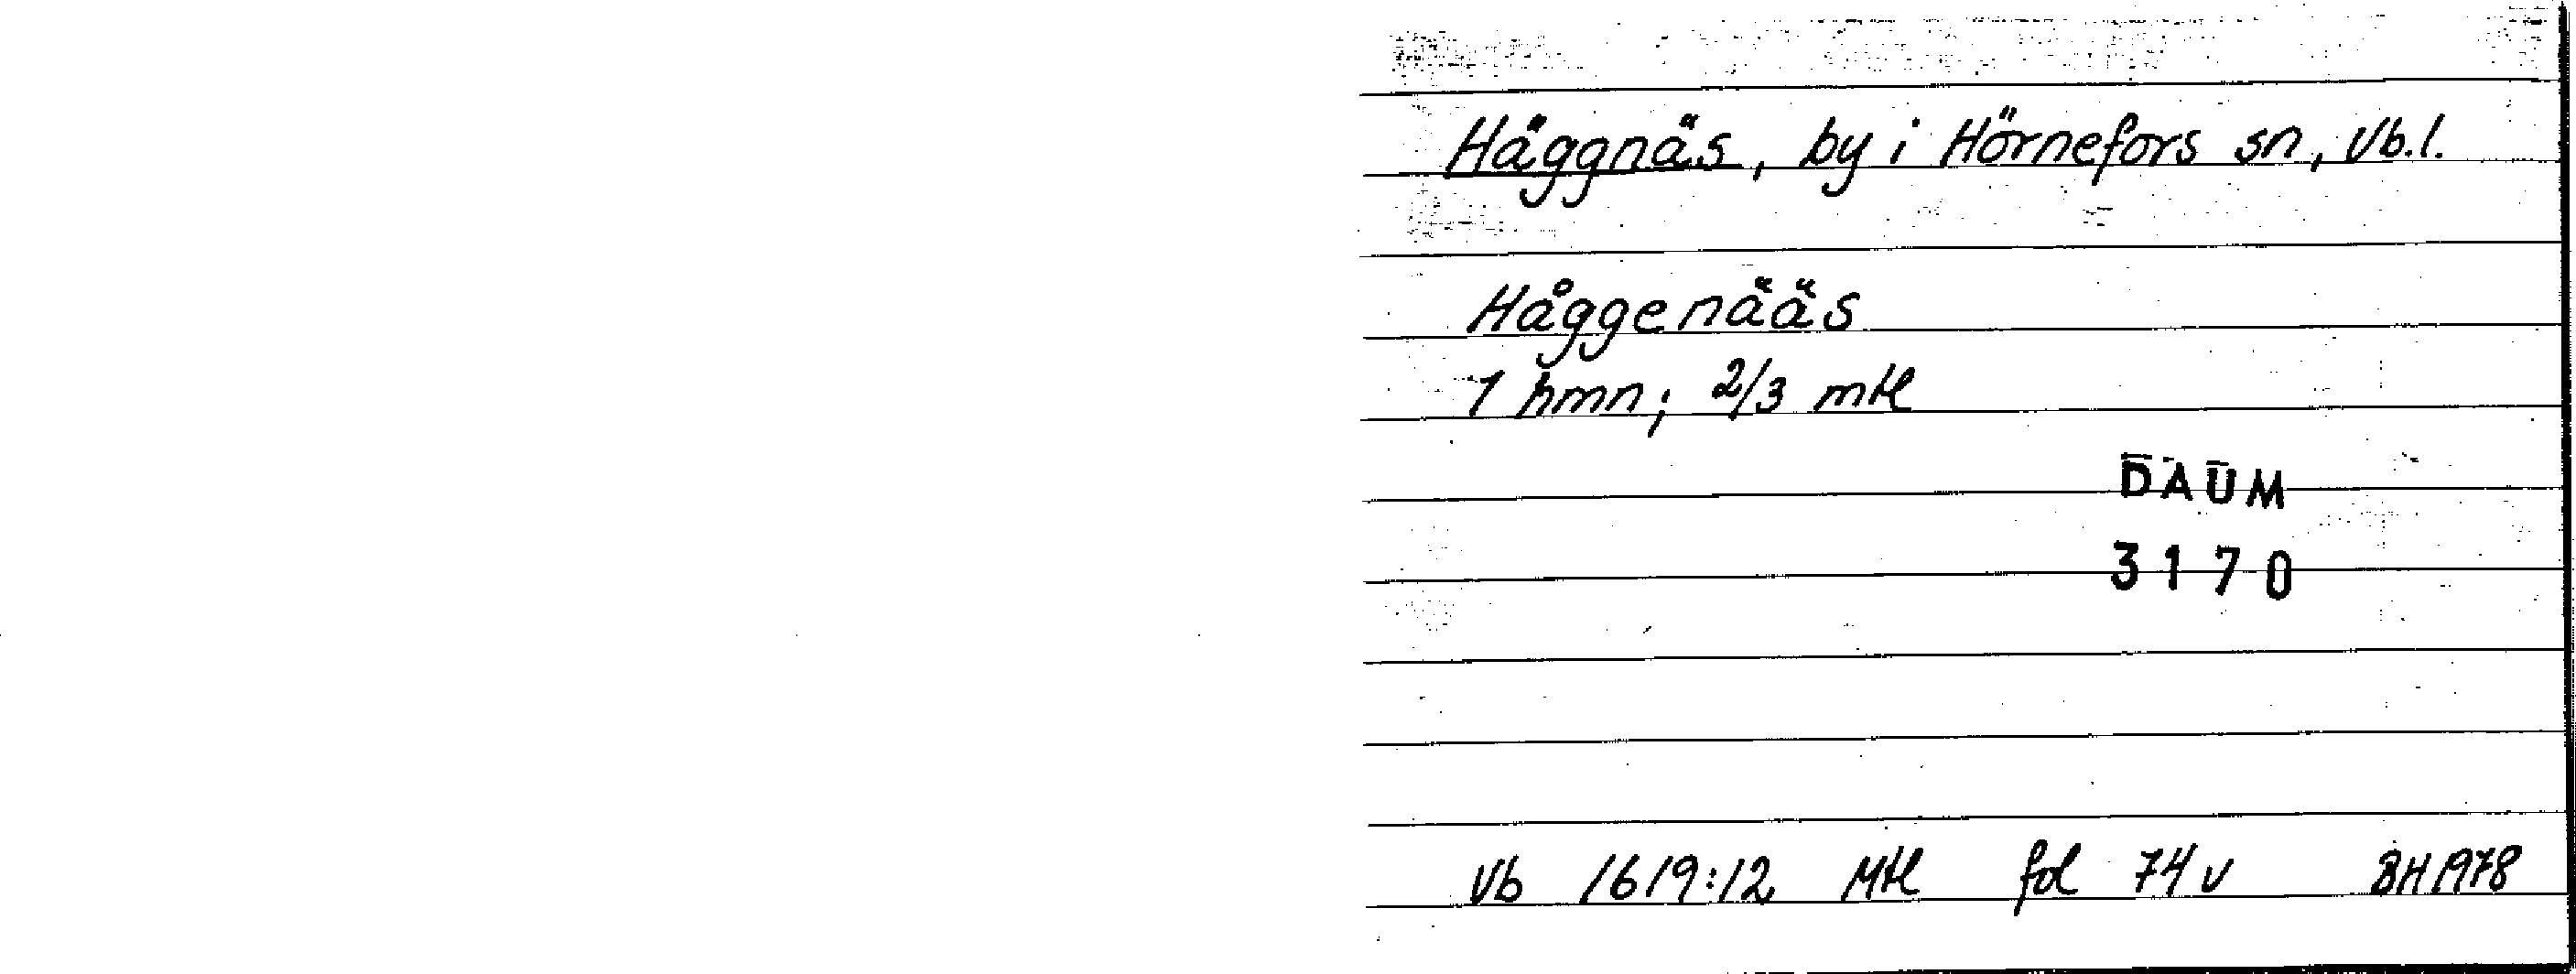 Häggnäs, by i Hörnefors sn, Vb.l.
Håggenääs
1 hmn; 2/3 mtl
DAUM
3170
Vb 1619:12 Mtl fol 74v BH1978